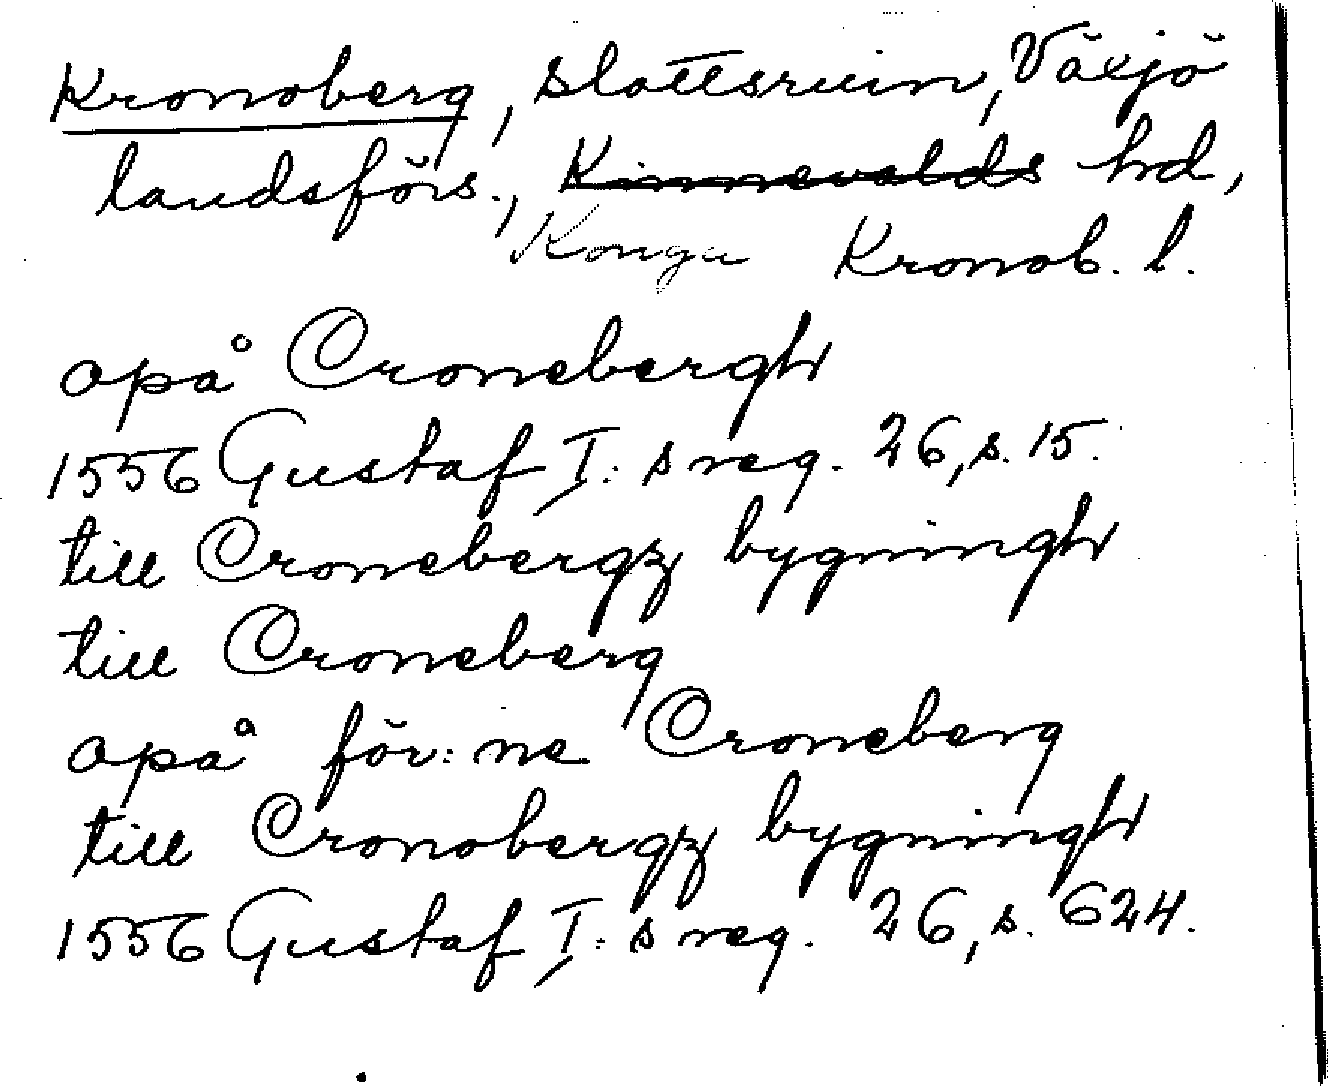 Kronoberg, slottsruin, Växjö
landsförs., Kinnevalds hd,
Konga Kronob. l.
opå Cronebergh
1556 Gustaf I:s reg. 26, s. 15.
till Cronebergz bygningh
till Croneberg
opå för:ne Croneberg
till Cronobergz bygningh
1556 Gustaf I:s reg. 26, s. 624.